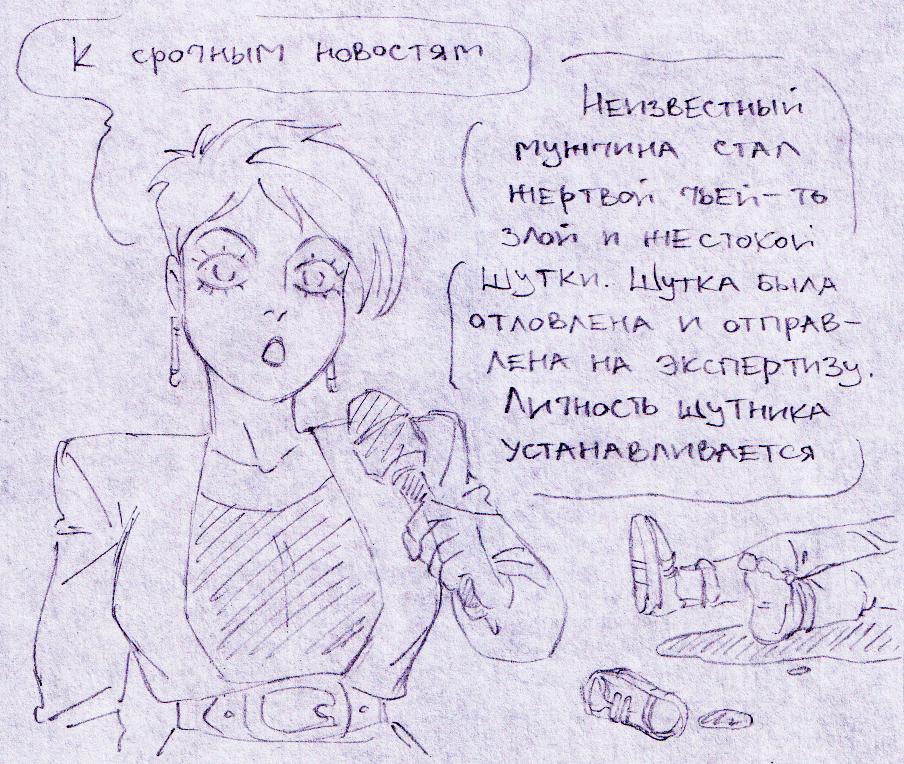 К срочным новостям
Неизвестный
мужчина стал
жертвой чьей-то
злой и жестокой
шутки. Шутка была
отловлена и отправ-
лена на экспертизу.
Личность шутника
устанавливается